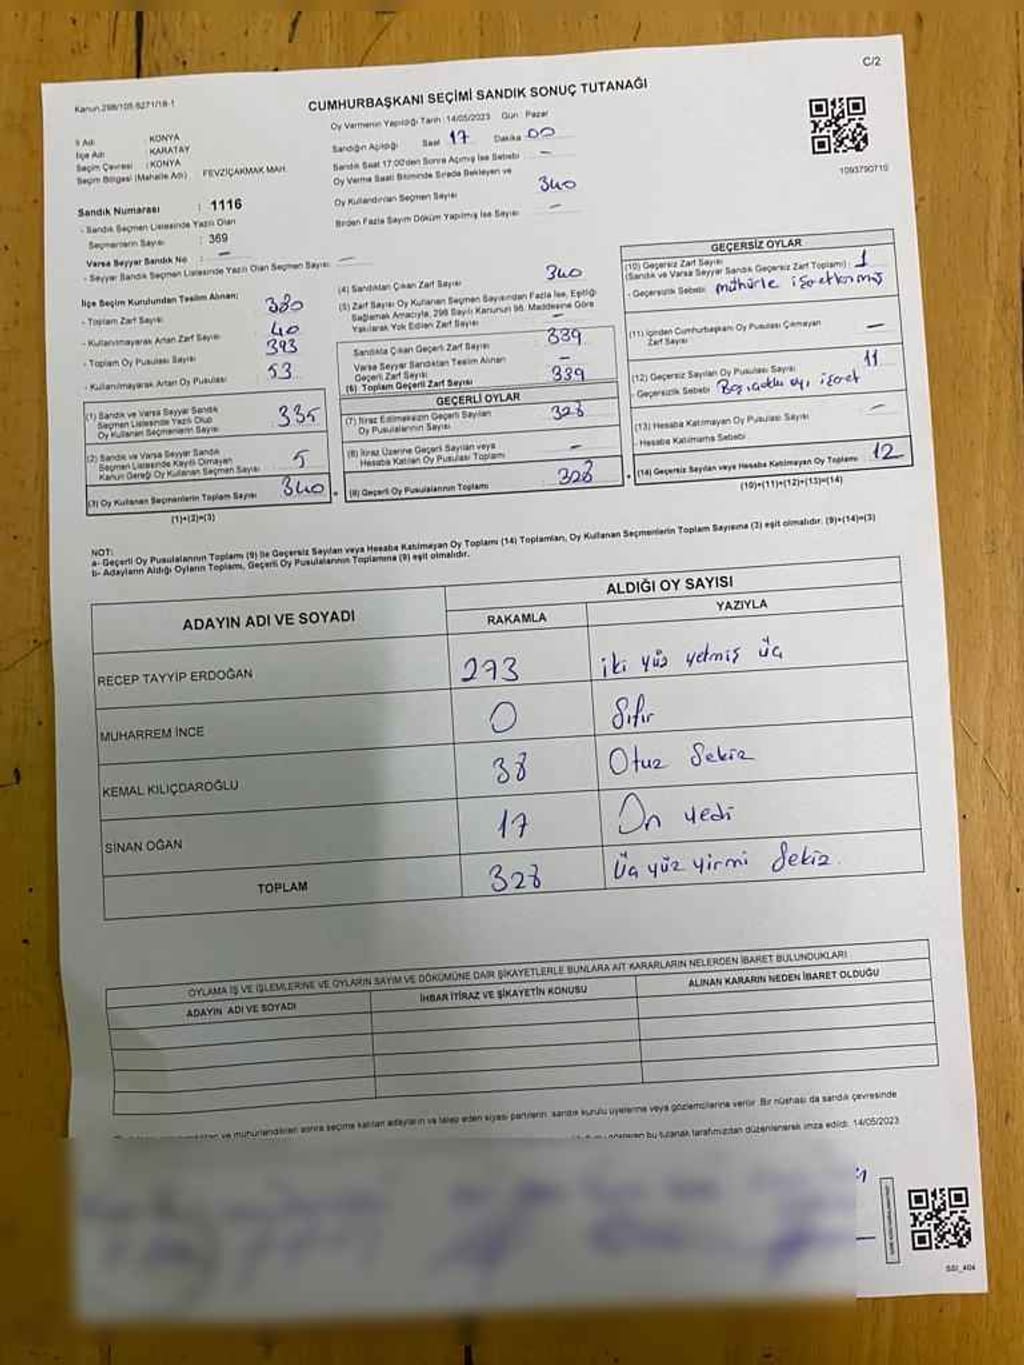 C/2
Kanun.298/105.6271/18-1
CUMHURBAŞKANI SEÇİMİ SANDIK SONUÇ TUTANAĞI
İl Adı : KONYA
İlçe Adı : KARATAY
Seçim Çevresi : KONYA
Seçim Bölgesi (Mahalle Adı) FEVZİÇAKMAK MAH.
Sandık Numarası : 1116
- Sandık Seçmen Listesinde Yazılı Olan
Seçmenlerin Sayısı : 369
Varsa Seyyar Sandık No : —
- Seyyar Sandık Seçmen Listesinde Yazılı Olan Seçmen Sayısı: —
Oy Vermenin Yapıldığı Tarih :14/05/2023 Gün : Pazar
Sandığın Açıldığı Saat 17 Dakika 00
Sandık Saat 17:00'den Sonra Açılmış İse Sebebi : —
Oy Verme Saati Bitiminde Sırada Bekleyen ve
Oy Kullandırılan Seçmen Sayısı 340
Birden Fazla Sayım Döküm Yapılmış İse Sayısı: —
1093790710
İlçe Seçim Kurulundan Teslim Alınan;
- Toplam Zarf Sayısı 380
- Kullanılmayarak Artan Zarf Sayısı 40
- Toplam Oy Pusulası Sayısı 393
- Kullanılmayarak Artan Oy Pusulası 53
(1) Sandık ve Varsa Seyyar Sandık
Seçmen Listesinde Yazılı Olup
Oy Kullanan Seçmenlerin Sayısı 335
(2) Sandık ve Varsa Seyyar Sandık
Seçmen Listesinde Kayıtlı Olmayan
Kanun Gereği Oy Kullanan Seçmen Sayısı 5
(3) Oy Kullanan Seçmenlerin Toplam Sayısı 340
(1)+(2)=(3)
(4) Sandıktan Çıkan Zarf Sayısı 340
(5) Zarf Sayısı Oy Kullanan Seçmen Sayısından Fazla İse, Eşitliği
Sağlamak Amacıyla, 298 Sayılı Kanunun 98. Maddesine Göre
Yakılarak Yok Edilen Zarf Sayısı —
Sandıkta Çıkan Geçerli Zarf Sayısı 339
Varsa Seyyar Sandıktan Teslim Alınan
Geçerli Zarf Sayısı —
(6) Toplam Geçerli Zarf Sayısı 339
GEÇERLİ OYLAR
(7) İtiraz Edilmeksizin Geçerli Sayılan
Oy Pusulalarının Sayısı 328
(8) İtiraz Üzerine Geçerli Sayılan veya
Hesaba Katılan Oy Pusulası Toplamı —
(9) Geçerli Oy Pusulalarının Toplamı 328
GEÇERSİZ OYLAR
(10) Geçersiz Zarf Sayısı
(Sandık ve Varsa Seyyar Sandık Geçersiz Zarf Toplamı) : 1
- Geçersizlik Sebebi: mühürle işaretlenmiş
(11) İçinden Cumhurbaşkanı Oy Pusulası Çıkmayan
Zarf Sayısı —
(12) Geçersiz Sayılan Oy Pusulası Sayısı 11
- Geçersizlik Sebebi Boş, çoklu oy, işaret
(13) Hesaba Katılmayan Oy Pusulası Sayısı —
- Hesaba Katılmama Sebebi
(14) Geçersiz Sayılan veya Hesaba Katılmayan Oy Toplamı 12
(10)+(11)+(12)+(13)=(14)
NOT:
a- Geçerli Oy Pusulalarının Toplamı (9) ile Geçersiz Sayılan veya Hesaba Katılmayan Oy Toplamı (14) Toplamları, Oy Kullanan Seçmenlerin Toplam Sayısına (3) eşit olmalıdır. (9)+(14)=(3)
b- Adayların Aldığı Oyların Toplamı, Geçerli Oy Pusulalarının Toplamına (9) eşit olmalıdır.
ADAYIN ADI VE SOYADI ALDIĞI OY SAYISI
RAKAMLA YAZIYLA
RECEP TAYYİP ERDOĞAN 273 iki yüz yetmiş üç
MUHARREM İNCE 0 Sıfır
KEMAL KILIÇDAROĞLU 38 Otuz Sekiz
SİNAN OĞAN 17 On yedi
TOPLAM 328 Üç yüz yirmi Sekiz.
OYLAMA İŞ VE İŞLEMLERİNE VE OYLARIN SAYIM VE DÖKÜMÜNE DAİR ŞİKAYETLERLE BUNLARA AİT KARARLARIN NELERDEN İBARET BULUNDUKLARI
ADAYIN ADI VE SOYADI İHBAR İTİRAZ VE ŞİKAYETİN KONUSU ALINAN KARARIN NEDEN İBARET OLDUĞU
ve mühürlendikten sonra seçime katılan adayların ve talep eden siyasi partilerin, sandık kurulu üyelerine veya gözlemcilerine verilir. Bir nüshası da sandık çevresinde
bu tutanak tarafımızdan düzenlenerek imza edildi. 14/05/2023
SSI_404